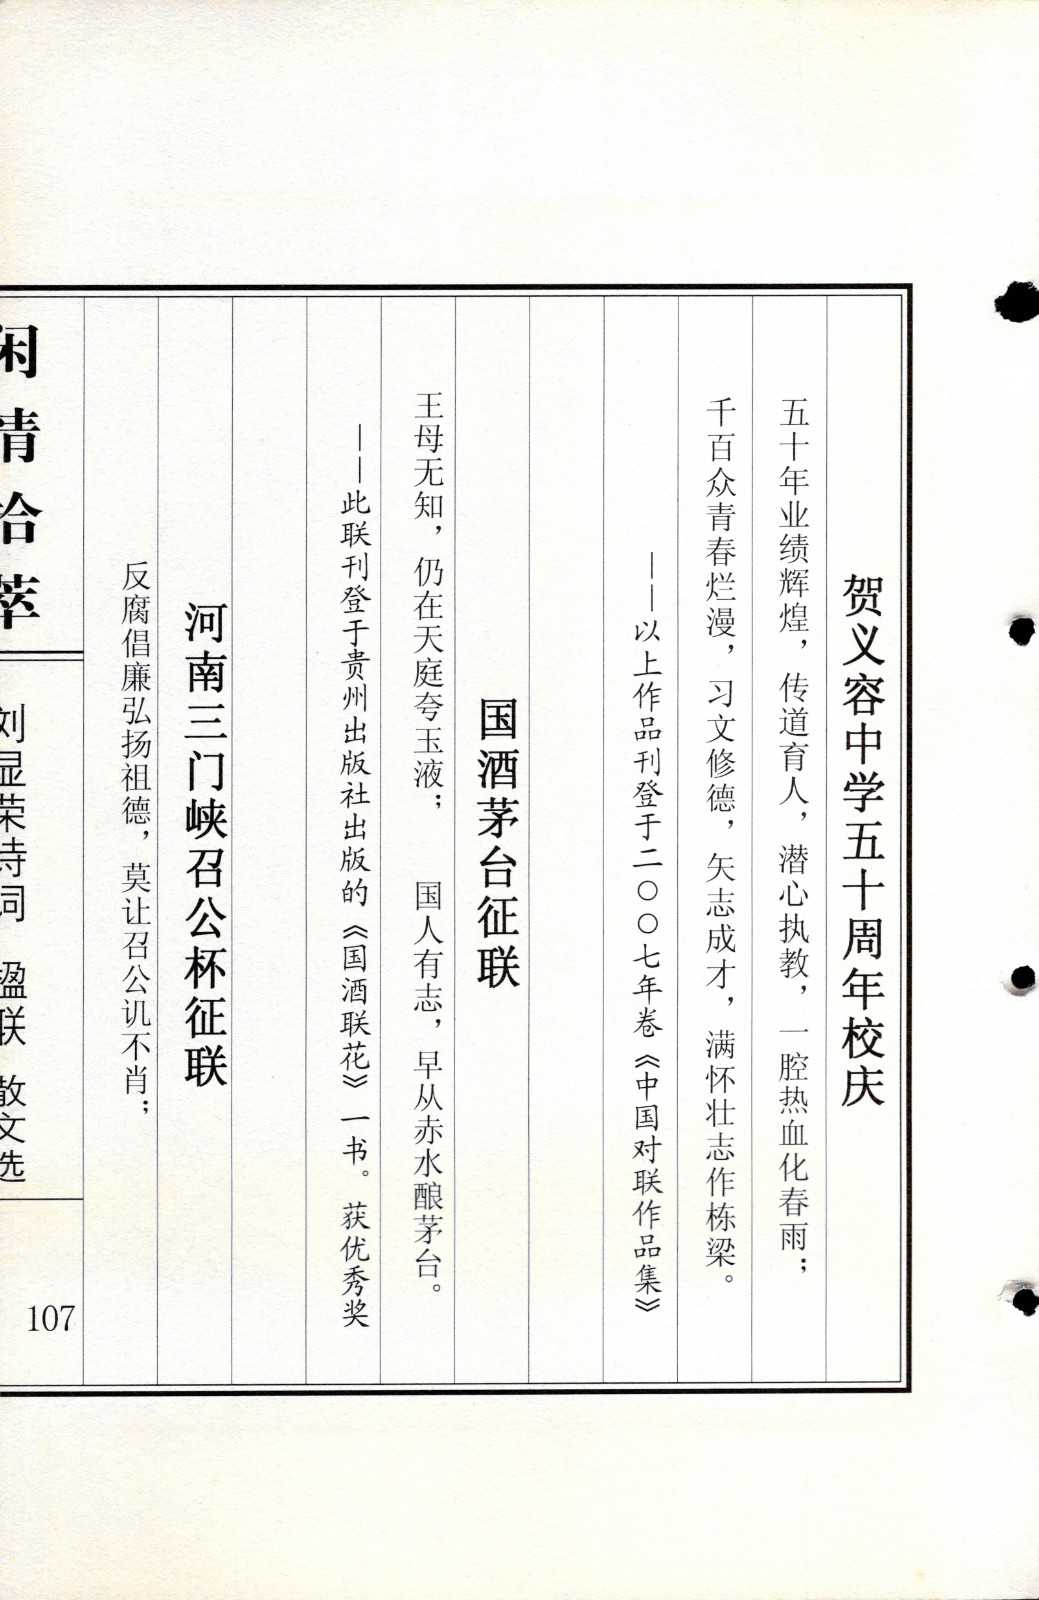 贺义容中学五十周年校庆
五十年业绩辉煌，传道育人，潜心执教，一腔热血化春雨；
千百众青春烂漫，习文修德，矢志成才，满怀壮志作栋梁。
——以上作品刊登于二〇〇七年卷《中国对联作品集》
国酒茅台征联
王母无知，仍在天庭夸玉液；　国人有志，早从赤水酿茅台。
——此联刊登于贵州出版社出版的《国酒联花》一书。获优秀奖
河南三门峡召公杯征联
反腐倡廉弘扬祖德，莫让召公讥不肖；
闲情拾萃
刘显荣诗词　楹联　散文选
107